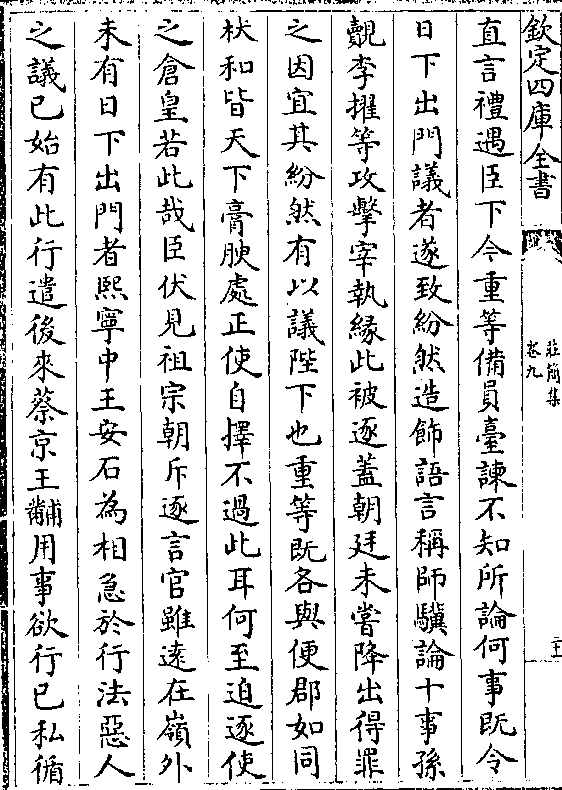 欽定四庫全書
莊簡集
卷九
二十
直言禮遇臣下今重等備員臺諫不知所論何事既令
日下出門議者遂致紛然造飾語言稱師驥論十事孫
覿李擢等攻擊宰執緣此被逐蓋朝廷未嘗降出得罪
之因宜其紛然有以議陛下也重等既各與便郡如同
栿和皆天下膏腴處正使自擇不過此耳何至迫逐使
之倉皇若此哉臣伏見祖宗朝斥逐言官雖逺在嶺外
未有日下出門者熙寧中王安石為相急於行法惡人
之議已始有此行遣後來蔡京王黼用事欲行已私循